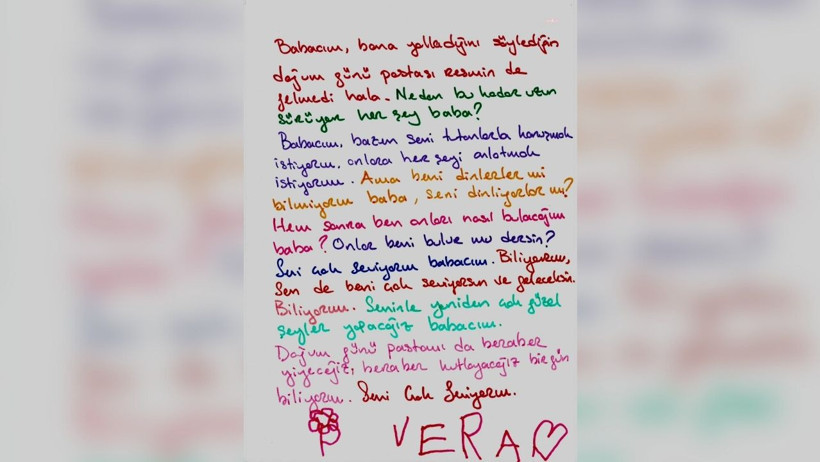 Babacım, bana yolladığını söylediğin
doğum günü pastası resmin de
gelmedi hala. Neden bu kadar uzun
sürüyor her şey baba?
Babacım, bazen seni tutanlarla konuşmak
istiyorum, onlara her şeyi anlatmak
istiyorum. Ama beni dinlerler mi
bilmiyorum baba, seni dinliyorlar mı?
Hem sonra ben onları nasıl bulacağım
baba? Onlar beni bulur mu dersin?
Seni çok seviyorum babacım. Biliyorum,
Sen de beni çok seviyorsun ve geleceksin.
Biliyorum. Seninle yeniden çok güzel
şeyler yapacağız babacım.
Doğum günü pastamı da beraber
yiyeceğiz, beraber kutlayacağız bir gün
biliyorum. Seni Çok Seviyorum.
VERA